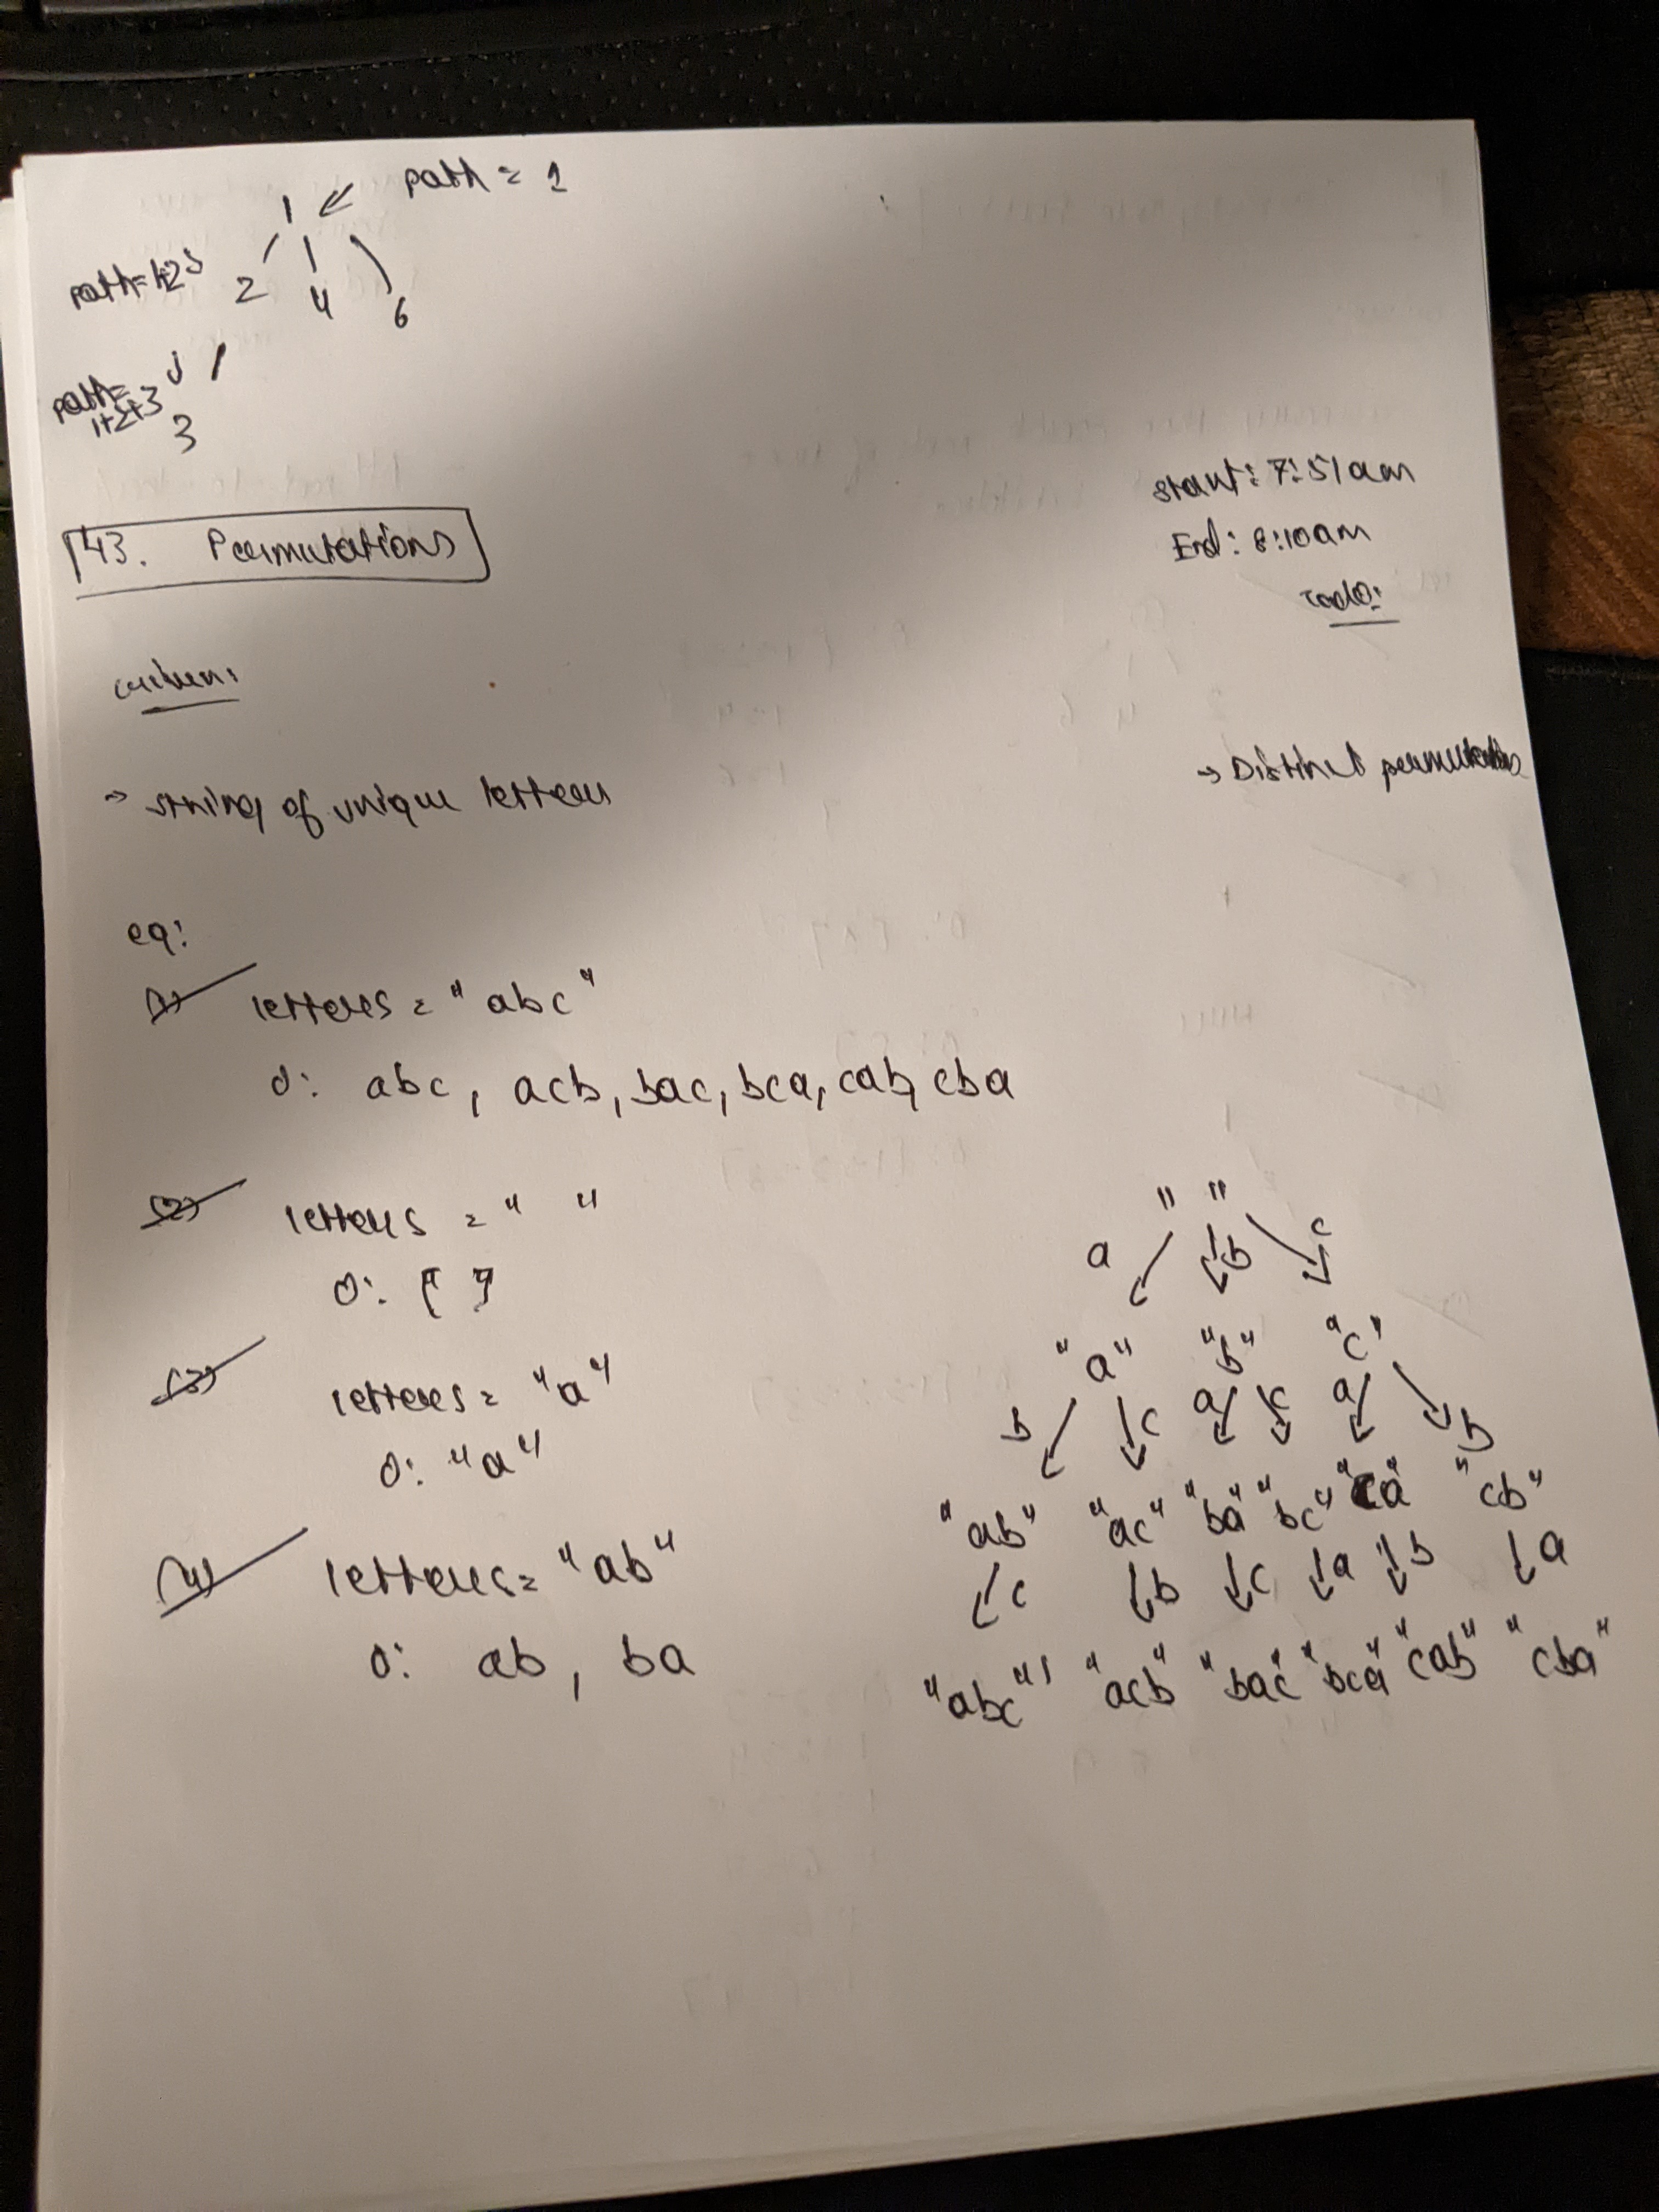 path = 1
1
path=1+2
2 4 6
path=
1+2+3
3
start: 7:51am
End: 8:10am
43. Permutations
todo:
Given:
→ string of unique letters
→ Distinct permutations
eg:
(1) letters = "abc"
O: abc, acb, bac, bca, cab, cba
(2) letters = " "
O: [ ]
(3) letters = "a"
O: "a"
(4) letters = "ab"
O: ab, ba
" "
a b c
"a" "b" "c"
b c a c a b
"ab" "ac" "ba" "bc" "ca" "cb"
c b c a b a
"abc" "acb" "bac" "bca" "cab" "cba"